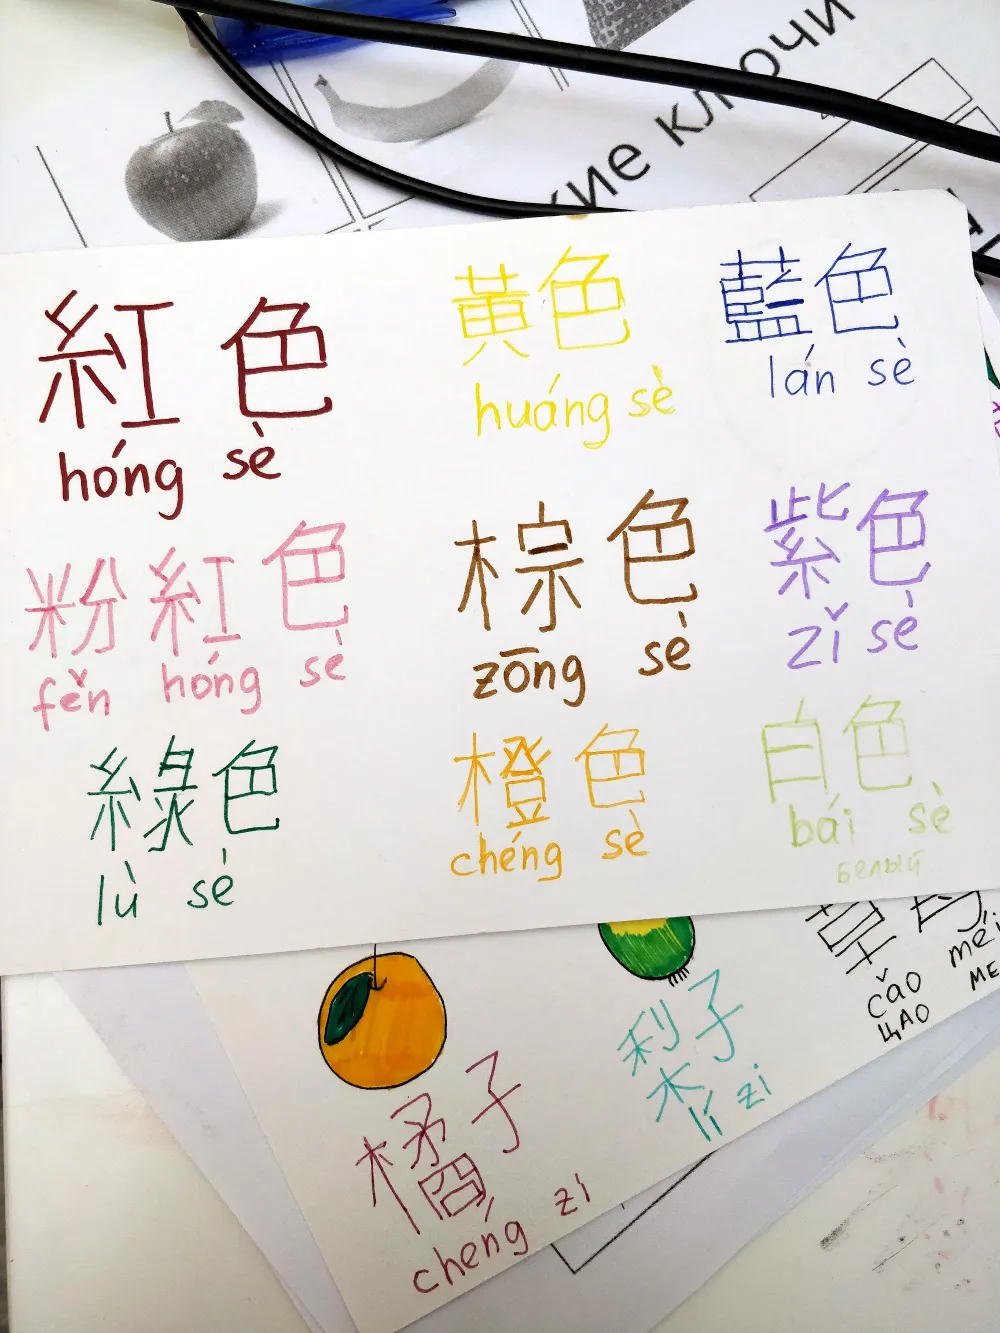 кие ключи
紅色 黃色 藍色
hóng sè huáng sè lán sè
粉紅色 棕色 紫色
fěn hóng sè zōng sè zǐ sè
綠色 橙色 白色
lù sè chéng sè bái sè
белый
草
cǎo méi
цао ме
梨子
lí zi
橘子
chéng zi